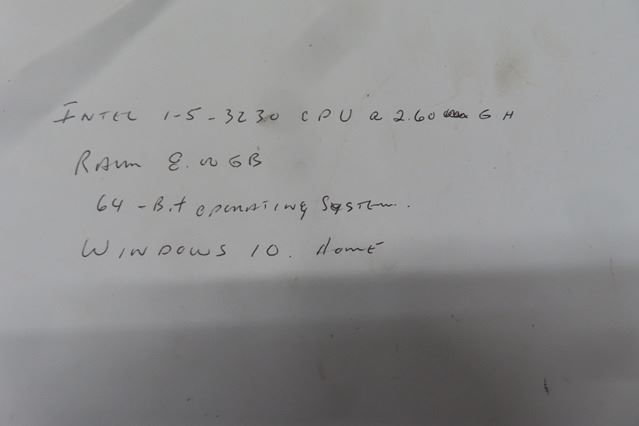 INTEL 1-5-3230 CPU @ 2.60 GH
RAM 8.00 GB
64-Bit OPERATING SYSTEM.
WINDOWS 10. Home